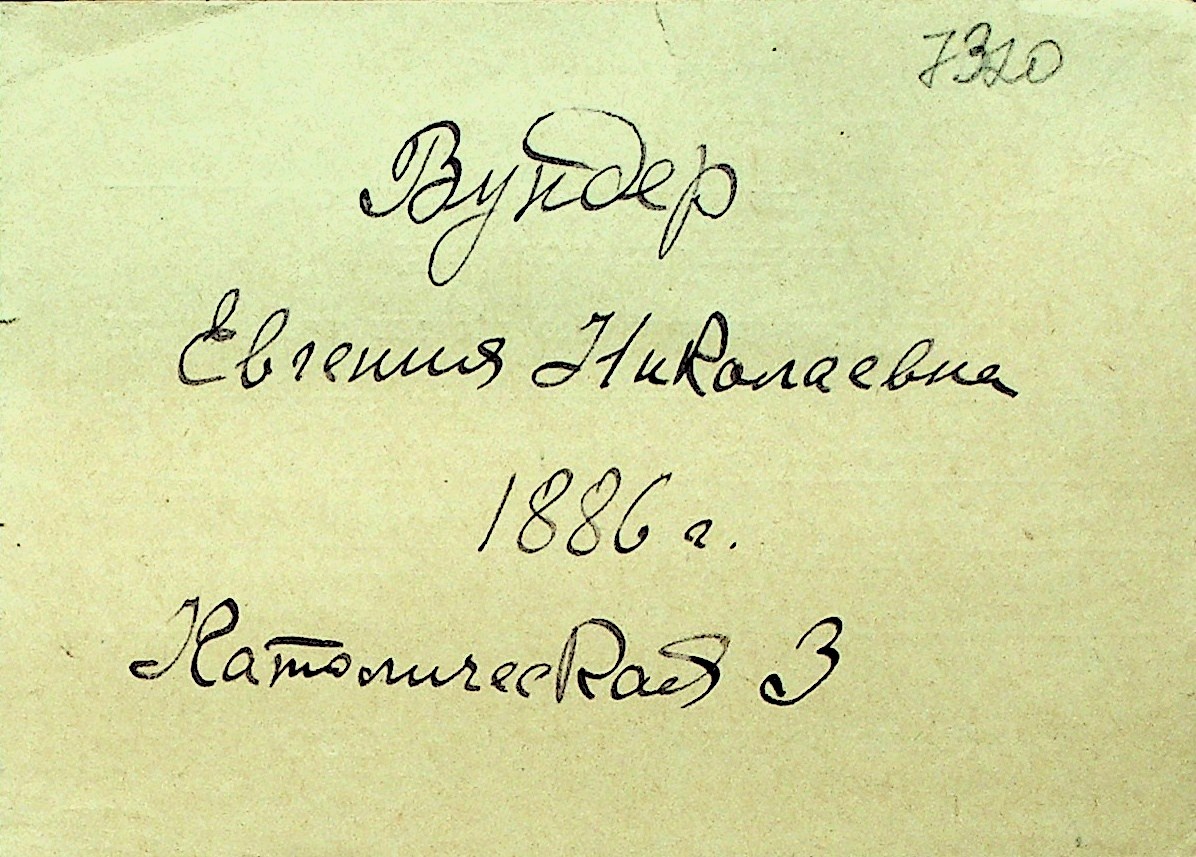 7320
Вундер
Евгения Николаевна
1886 г.
Католическая 3